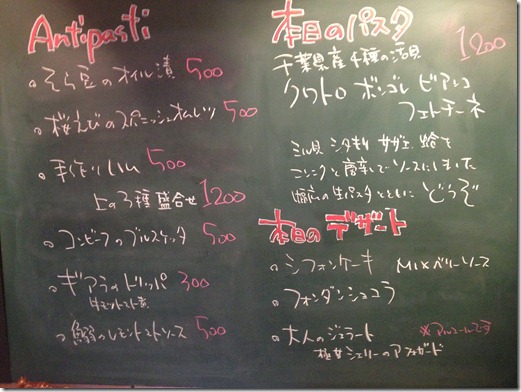 Antipasti
。そら豆のオイル漬 500
。桜えびのスパニッシュオムレツ 500
。手作りハム 500
上の3種盛合せ 1200
。コンビーフのブルスケッタ 500
。ギアラのトリッパ 300
牛モツトマト煮
。鰯のレモントマトソース 500
本日のパスタ 1200
千葉県産4種の活貝
クワトロ ボンゴレ ビアンコ
フェトチーネ
ミル貝 シタキリ サザエ 蛤を
ニンニクと唐辛子でソースにしました
幅広の生パスタとともに どうぞ
本日のデザート
。シフォンケーキ MIXベリーソース
。フォンダンショコラ
。大人のジェラート ※アルコールです
極甘シェリーのアフォガード